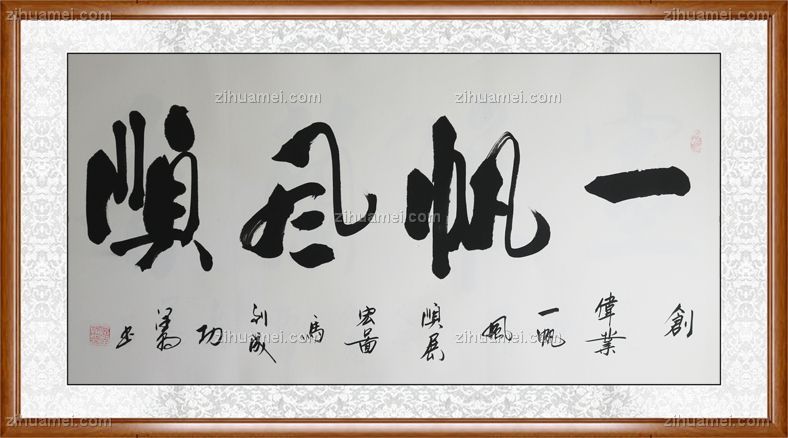 一帆風順
創偉業一帆風順展宏圖馬到成功
書
zihuamei.com
zihuamei.com
zihuamei.com
zihuamei.com
zihuamei.com
zihuamei.com
zihuamei.com
zihuamei.com
zihuamei.com
zihuamei.com